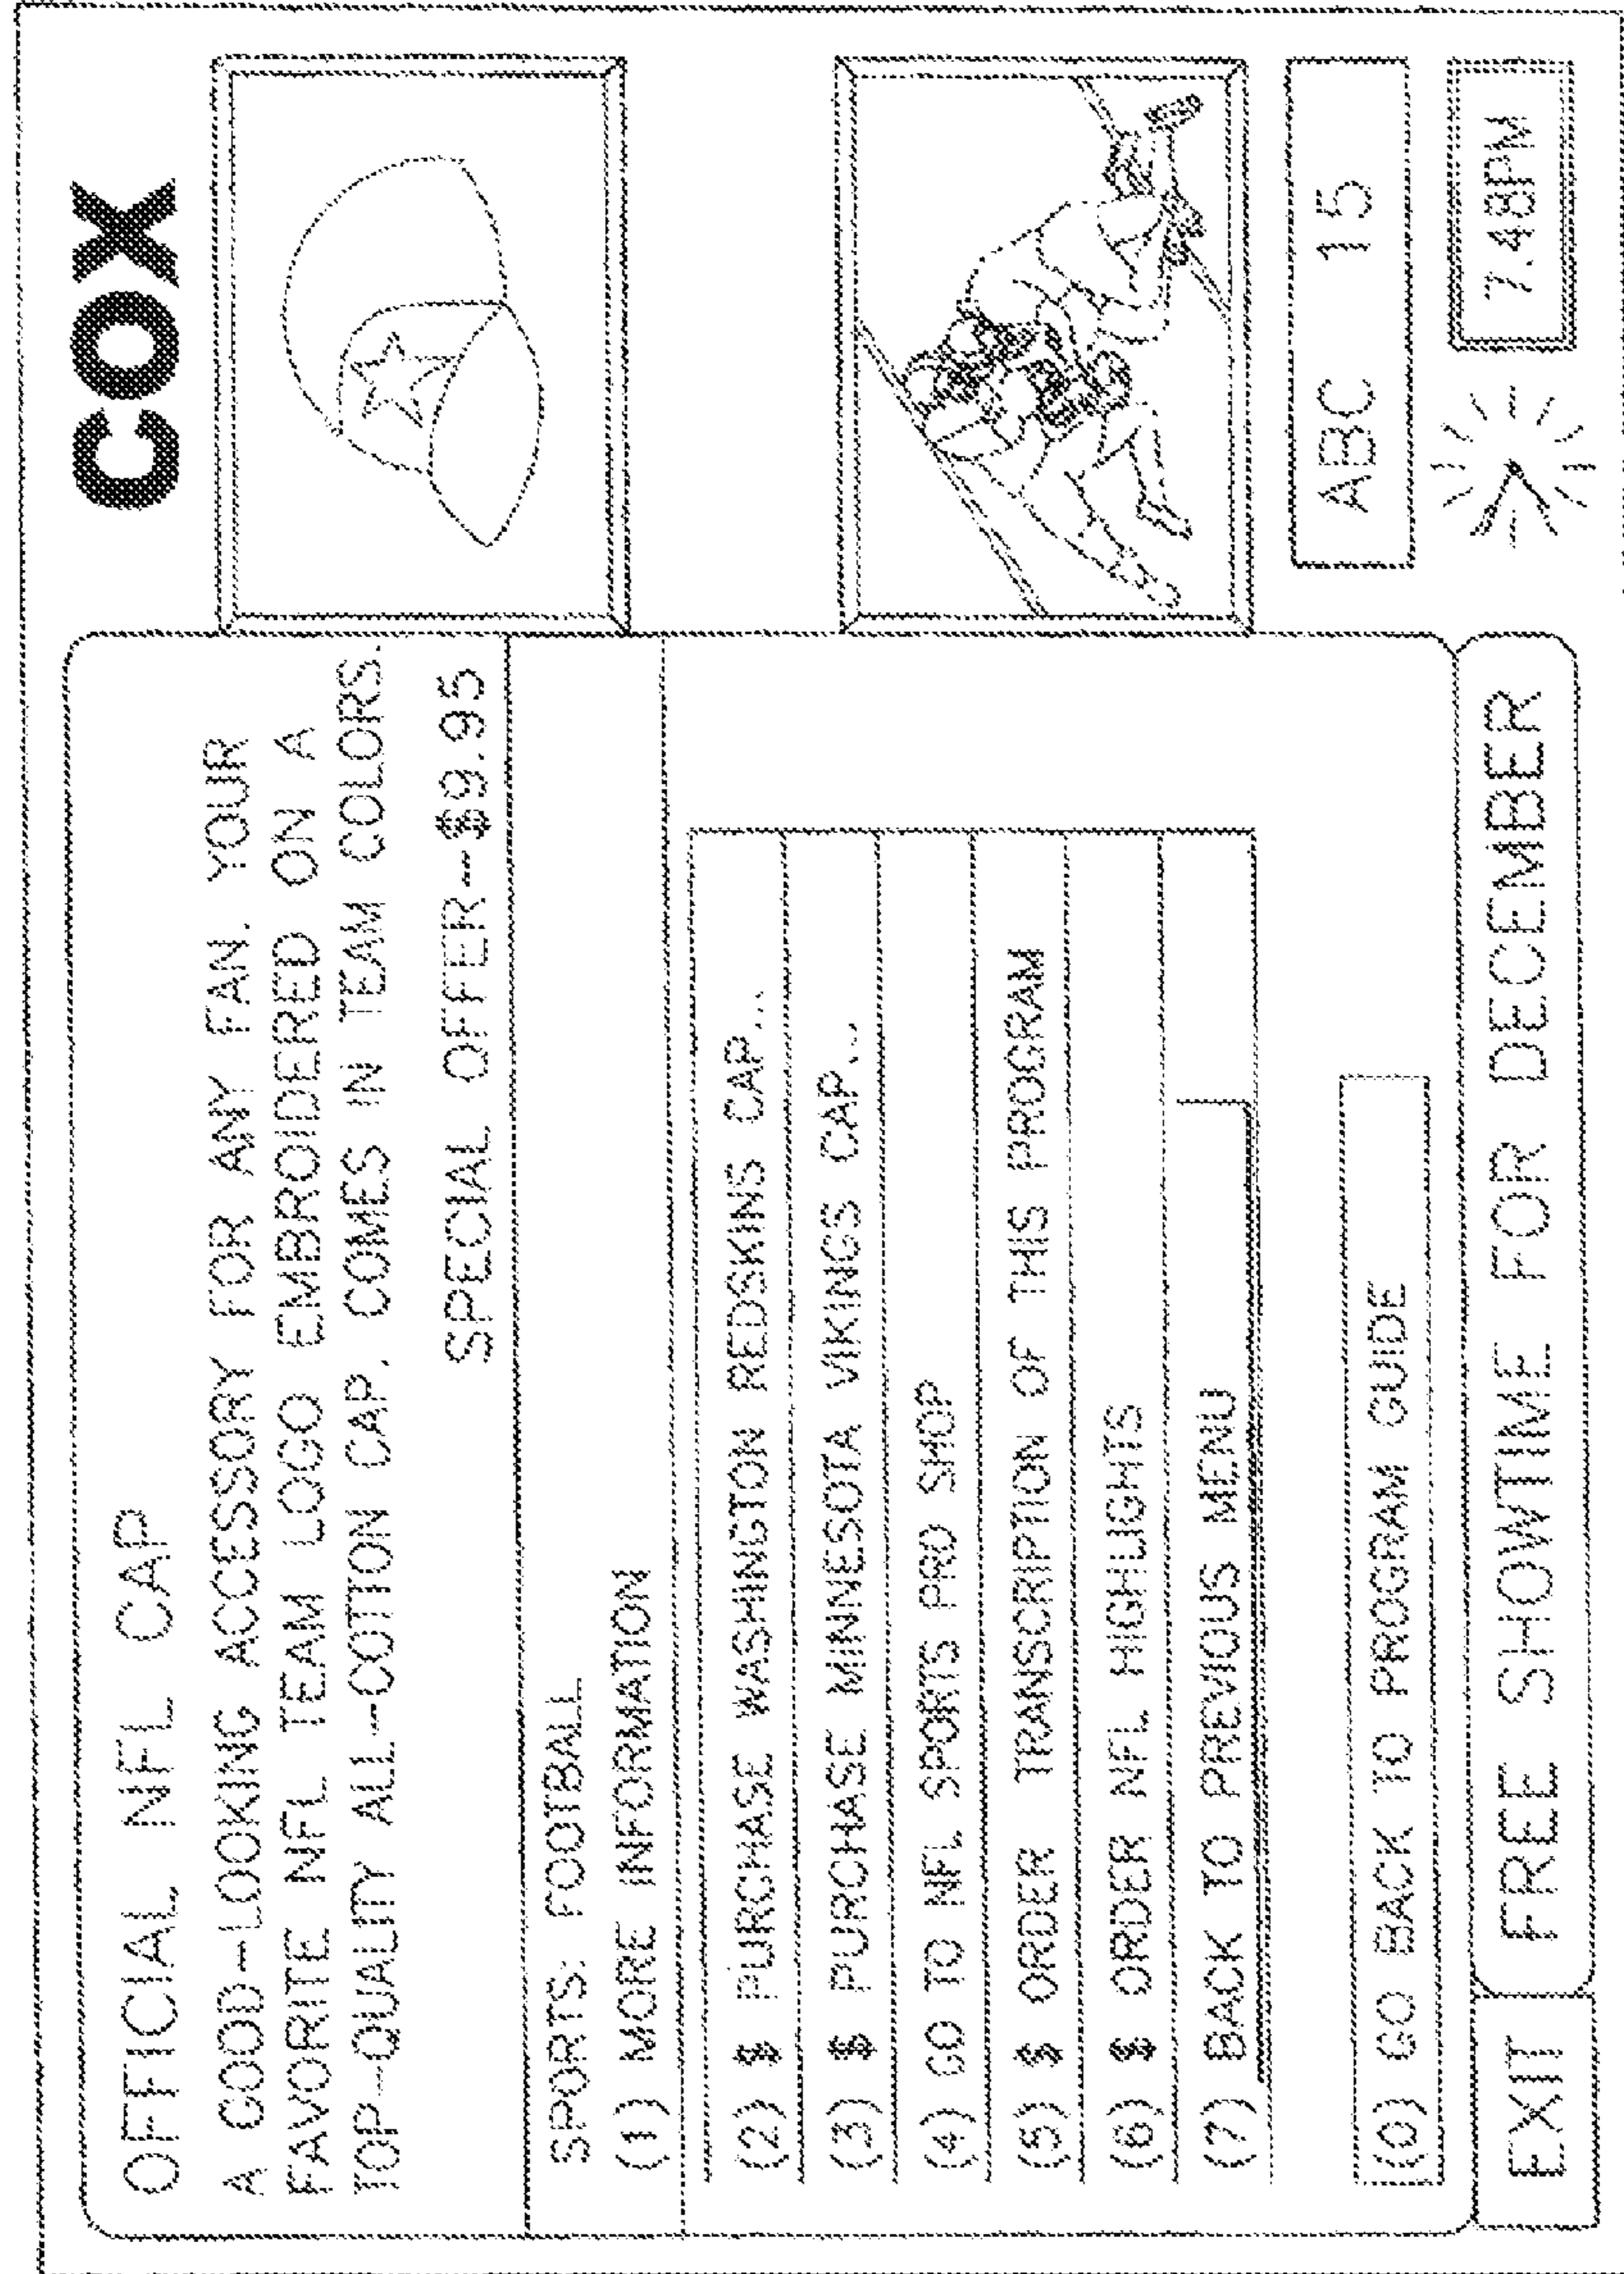 COX
OFFICIAL NFL CAP
A GOOD-LOOKING ACCESSORY FOR ANY FAN. YOUR
FAVORITE NFL TEAM LOGO EMBROIDERED ON A
TOP-QUALITY ALL-COTTON CAP. COMES IN TEAM COLORS.
SPECIAL OFFER--$9.95
SPORTS: FOOTBALL
(1) MORE INFORMATION
(2) $ PURCHASE WASHINGTON REDSKINS CAP...
(3) $ PURCHASE MINNESOTA VIKINGS CAP...
(4) GO TO NFL SPORTS PRO SHOP
(5) $ ORDER TRANSCRIPTION OF THIS PROGRAM
(6) $ ORDER NFL HIGHLIGHTS
(7) BACK TO PREVIOUS MENU
(0) GO BACK TO PROGRAM GUIDE
ABC 15
7.48PM
EXIT FREE SHOWTIME FOR DECEMBER